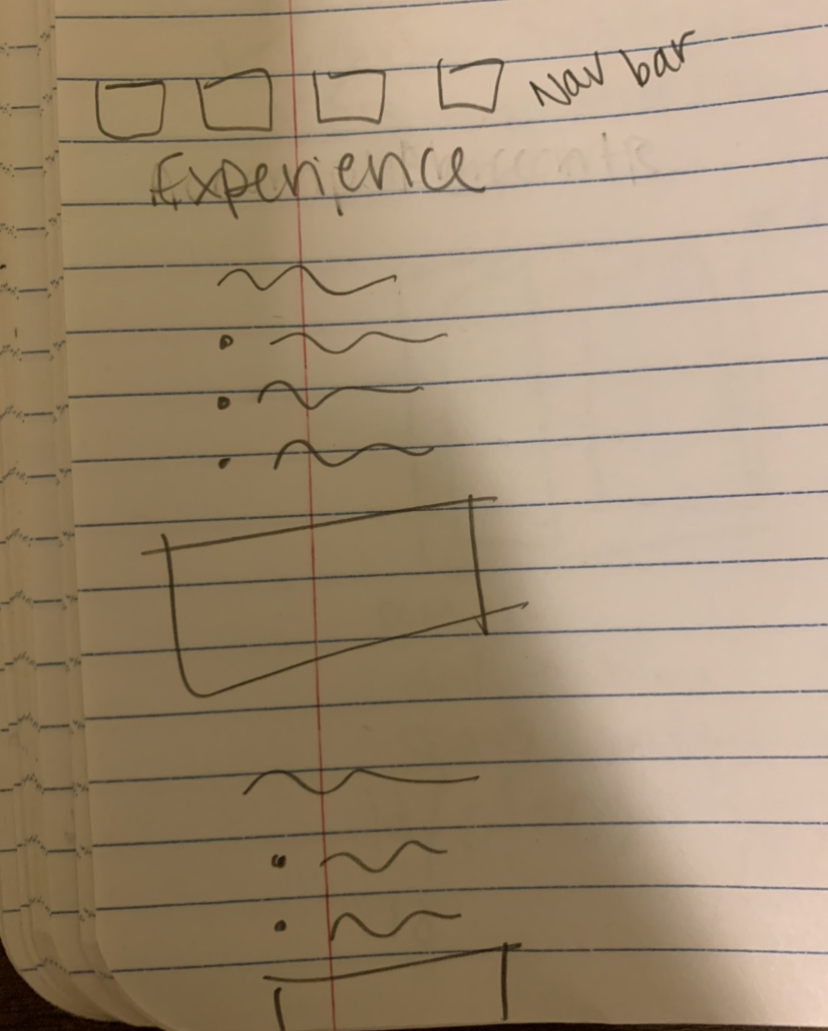 Nav bar
Experience